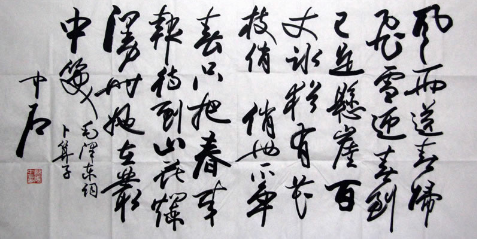 風雨送春歸
飛雪迎春到
已是懸崖百
丈冰猶有花
枝俏 俏也不爭
春只把春来
報待到山花爛
漫时她在叢
中笑
毛澤东词
卜算子
中石